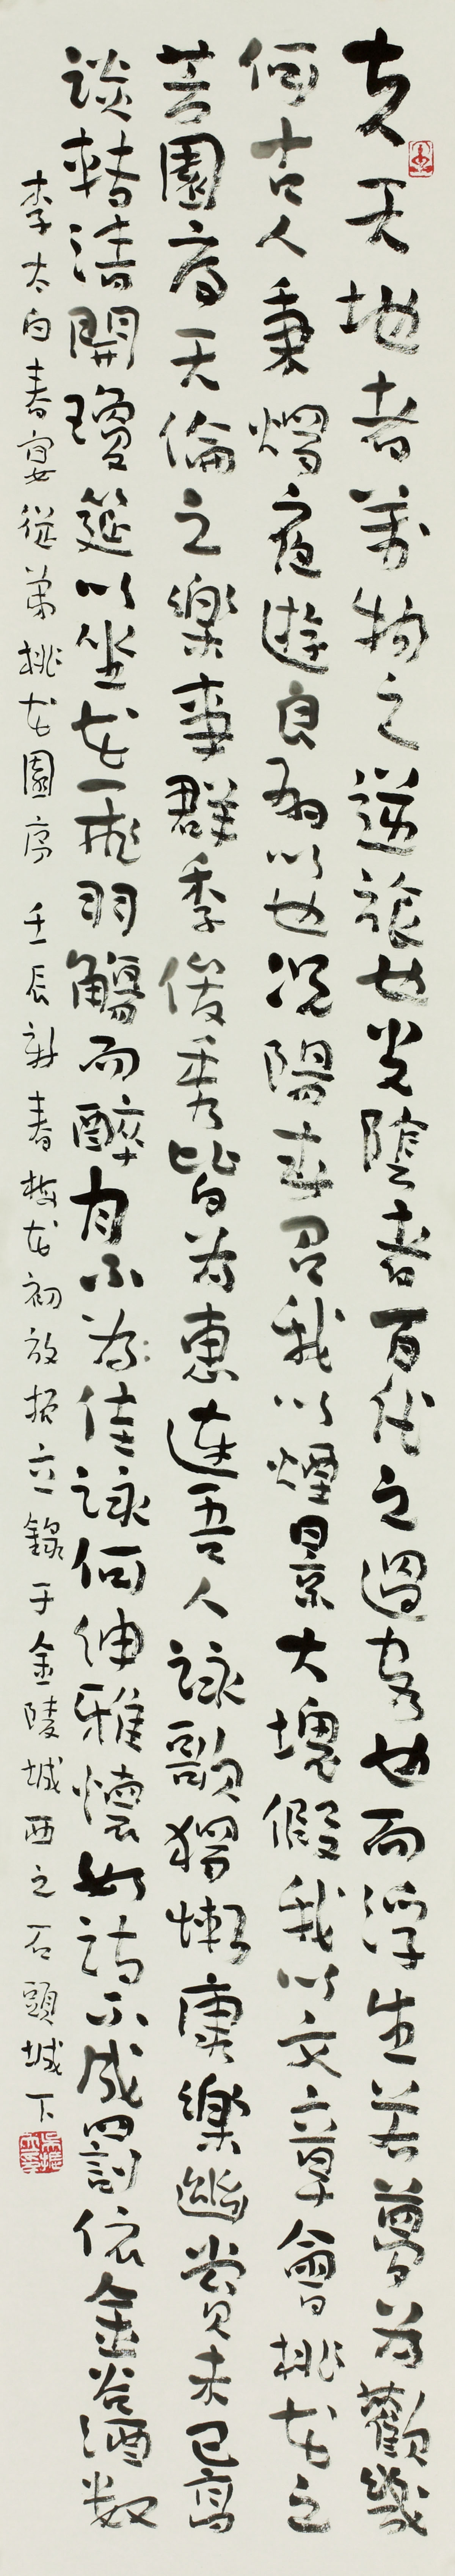 夫天地者萬物之逆旅也光陰者百代之過客也而浮生若夢為歡幾
何古人秉燭夜遊良有以也況陽春召我以煙景大塊假我以文章會桃花之
芳園序天倫之樂事群季俊秀皆為惠連吾人詠歌獨慚康樂幽賞未已高
談轉清開瓊筵以坐花飛羽觴而醉月不為佳詠何伸雅懷如詩不成罰依金谷酒數
李太白春宴從弟桃花園序 壬辰新春梅花初放振立錄于金陵城西之石頭城下